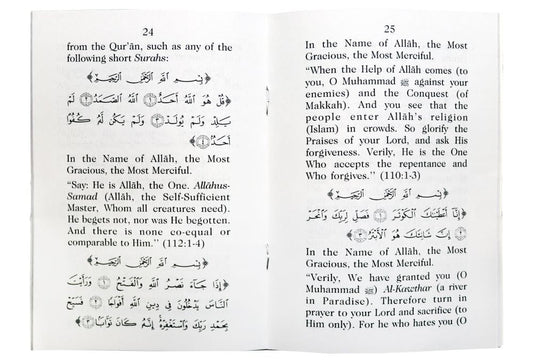 24
from the Qur'ān, such as any of the
following short Surahs:
﴿بِسْمِ اللَّهِ الرَّحْمَٰنِ الرَّحِيمِ﴾
﴿قُلْ هُوَ اللَّهُ أَحَدٌ ۝١ اللَّهُ الصَّمَدُ ۝٢ لَمْ
يَلِدْ وَلَمْ يُولَدْ ۝٣ وَلَمْ يَكُن لَّهُ كُفُوًا
أَحَدٌ ۝٤﴾
In the Name of Allāh, the Most
Gracious, the Most Merciful.
"Say: He is Allāh, the One. Allāhus-
Samad (Allāh, the Self-Sufficient
Master, Whom all creatures need).
He begets not, nor was He begotten.
And there is none co-equal or
comparable to Him." (112:1-4)
﴿بِسْمِ اللَّهِ الرَّحْمَٰنِ الرَّحِيمِ﴾
﴿إِذَا جَاءَ نَصْرُ اللَّهِ وَالْفَتْحُ ۝١ وَرَأَيْتَ
النَّاسَ يَدْخُلُونَ فِي دِينِ اللَّهِ أَفْوَاجًا ۝٢ فَسَبِّحْ
بِحَمْدِ رَبِّكَ وَاسْتَغْفِرْهُ إِنَّهُ كَانَ تَوَّابًا ۝٣﴾
25
In the Name of Allāh, the Most
Gracious, the Most Merciful.
"When the Help of Allāh comes (to
you, O Muhammad ﷺ against your
enemies) and the Conquest (of
Makkah). And you see that the
people enter Allāh's religion
(Islam) in crowds. So glorify the
Praises of your Lord, and ask His
forgiveness. Verily, He is the One
Who accepts the repentance and
Who forgives." (110:1-3)
﴿بِسْمِ اللَّهِ الرَّحْمَٰنِ الرَّحِيمِ﴾
﴿إِنَّا أَعْطَيْنَاكَ الْكَوْثَرَ ۝١ فَصَلِّ لِرَبِّكَ وَانْحَرْ
۝٢ إِنَّ شَانِئَكَ هُوَ الْأَبْتَرُ ۝٣﴾
In the Name of Allāh, the Most
Gracious, the Most Merciful.
"Verily, We have granted you (O
Muhammad ﷺ) Al-Kawthar (a river
in Paradise). Therefore turn in
prayer to your Lord and sacrifice (to
Him only). For he who hates you (O